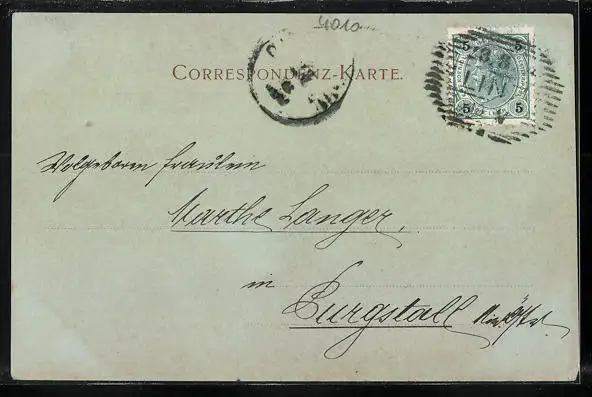 4010
CORRESPONDENZ-KARTE.
5 5
LINZ
5 5
Wolgeboren Fräulein
Marthe Langer,
in
Purgstall